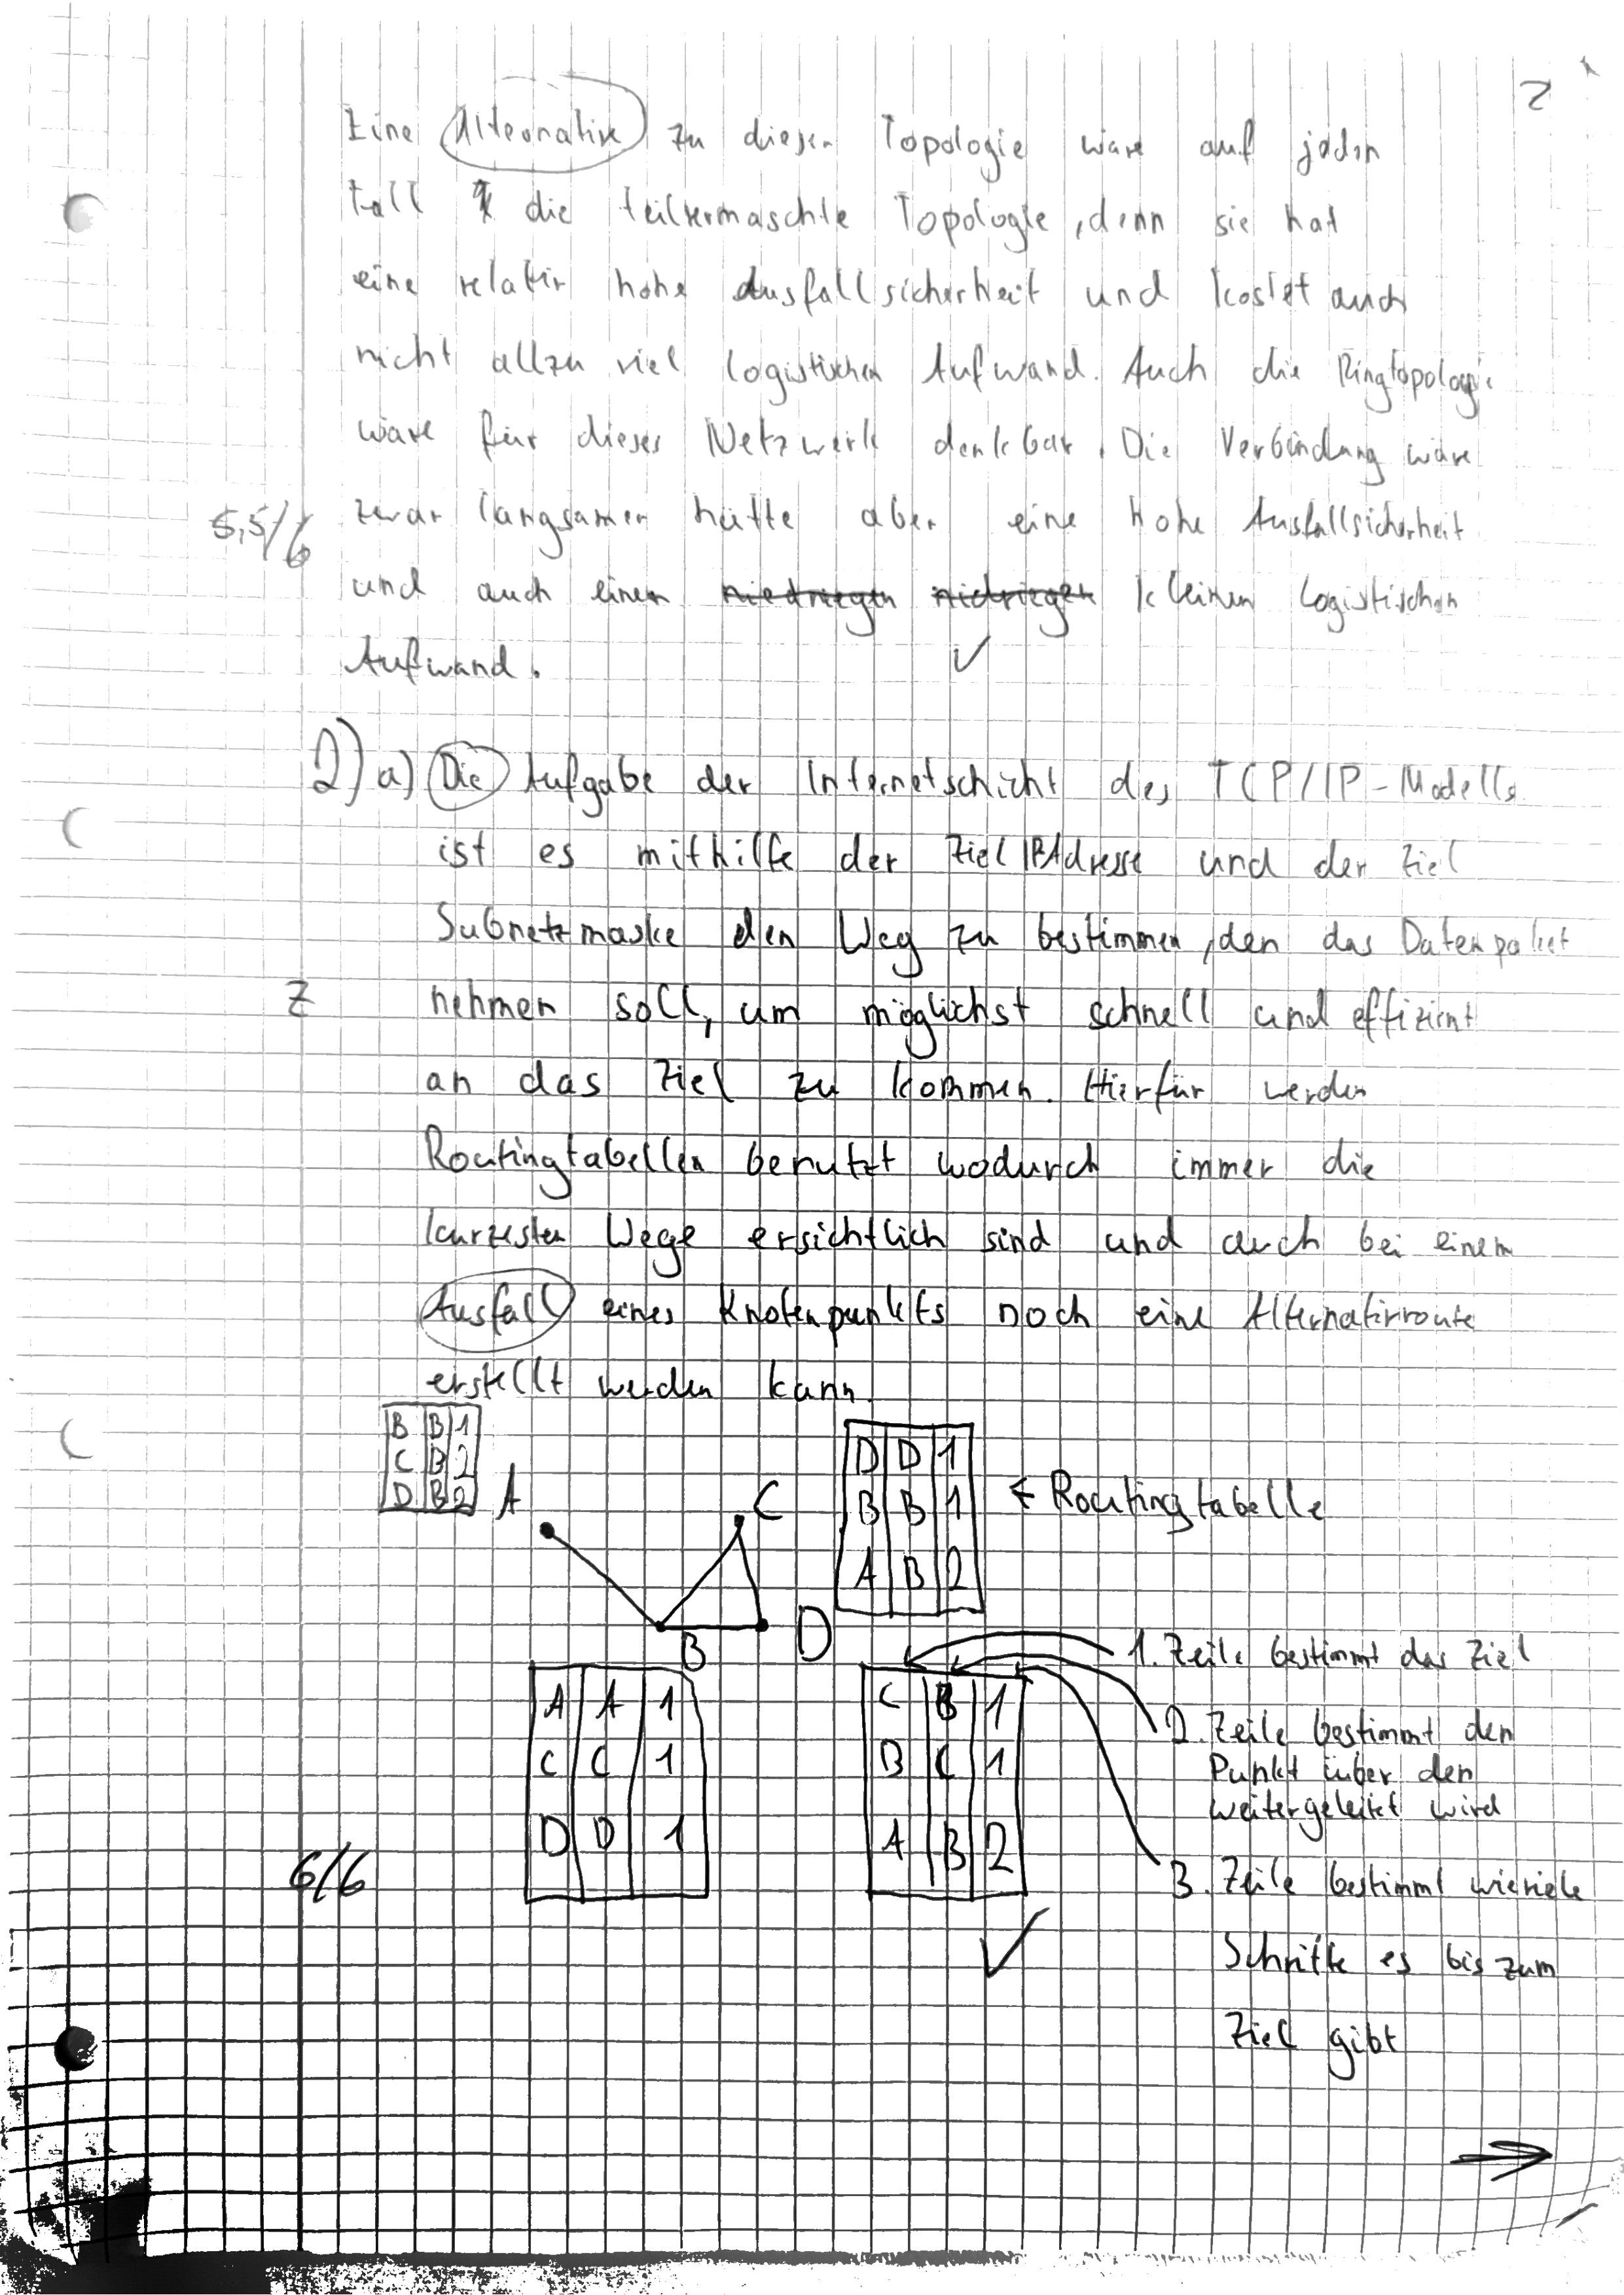 2
Eine Alternative zu dieser Topologie wäre auf jeden
Fall die teilvermaschte Topologie, denn sie hat
eine relativ hohe Ausfallsicherheit und kostet auch
nicht allzu viel logistischen Aufwand. Auch die Ringtopologie
wäre für dieses Netzwerk denkbar. Die Verbindung wäre
5,5/6 zwar langsamer hätte aber eine hohe Ausfallsicherheit
und auch einen niedriegen nidriegen kleinen logistischen
Aufwand. ✓
2) a) Die Aufgabe der Internetschicht des TCP/IP-Modells
ist es mithilfe der Ziel IPAdresse und der Ziel
Subnetzmaske den Weg zu bestimmen, den das Datenpaket
Z nehmen soll, um möglichst schnell und effizient
an das Ziel zu kommen. Hierfür werden
Routingtabellen benutzt wodurch immer die
kürzesten Wege ersichtlich sind und auch bei einem
Ausfall eines Knotenpunkts noch eine Alternativroute
erstellt werden kann.
B B 1
C B 2
D B 2
A
C
D D 1
B B 1
A B 2
← Routingtabelle
B
D
A A 1
C C 1
D D 1
C B 1
B C 1
A B 2
1. Zeile bestimmt das Ziel
2. Zeile bestimmt den
Punkt über den
weitergeleitet wird
3. Zeile bestimmt wieviele
Schritte es bis zum
Ziel gibt
6/6
✓
→